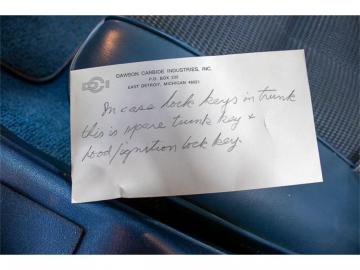 DAWSON CARBIDE INDUSTRIES, INC.
P.O. BOX 220
EAST DETROIT, MICHIGAN 48021
In case lock keys in trunk
this is spare trunk key &
hood/ignition lock key.